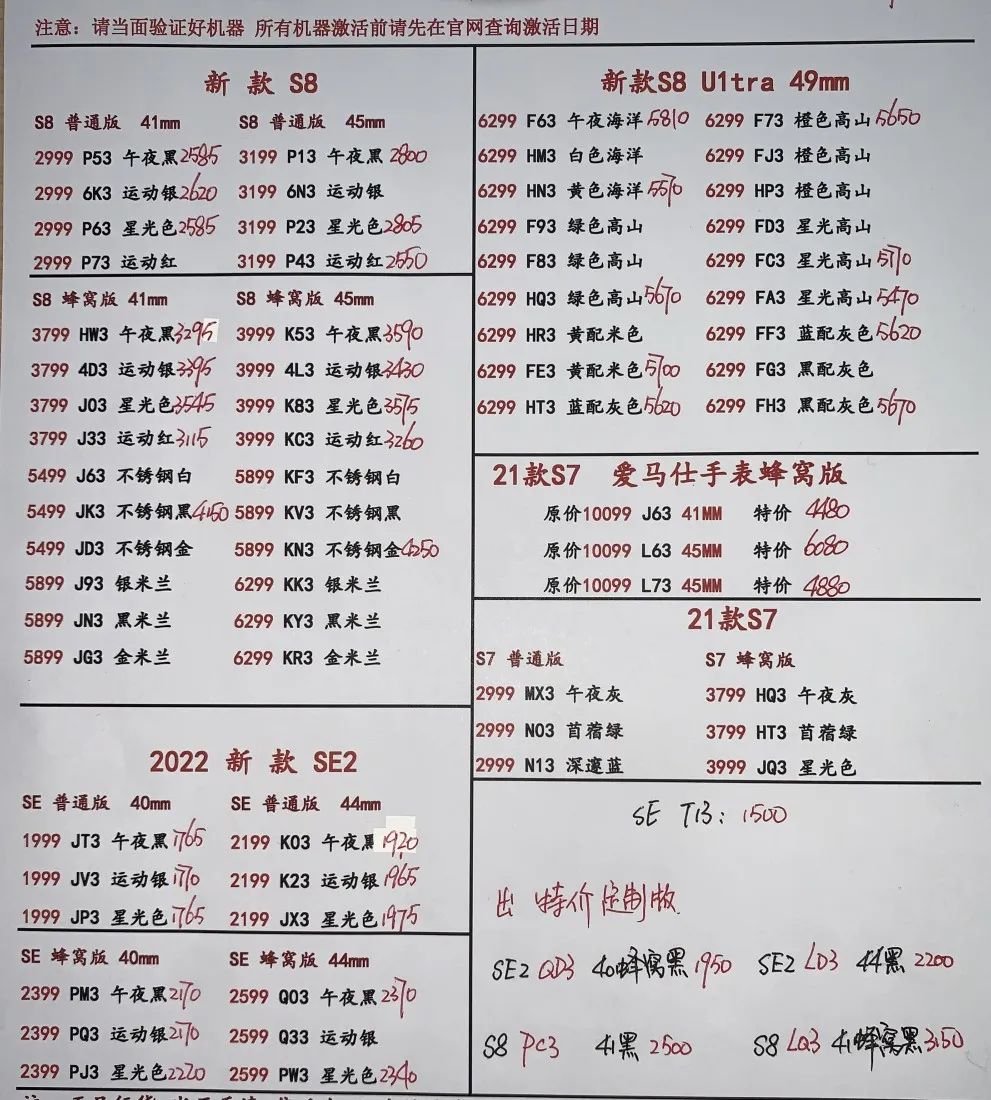 注意: 请当面验证好机器 所有机器激活前请先在官网查询激活日期
新 款 S8
S8 普通版 41mm S8 普通版 45mm
2999 P53 午夜黑 2585 3199 P13 午夜黑 2800
2999 6K3 运动银 2620 3199 6N3 运动银
2999 P63 星光色 2585 3199 P23 星光色 2805
2999 P73 运动红 3199 P43 运动红 2550
S8 蜂窝版 41mm S8 蜂窝版 45mm
3799 HW3 午夜黑 3295 3999 K53 午夜黑 3590
3799 4D3 运动银 3395 3999 4L3 运动银 3430
3799 J03 星光色 3545 3999 K83 星光色 3575
3799 J33 运动红 3115 3999 KC3 运动红 3260
5499 J63 不锈钢白 5899 KF3 不锈钢白
5499 JK3 不锈钢黑 4150 5899 KV3 不锈钢黑
5499 JD3 不锈钢金 5899 KN3 不锈钢金 4250
5899 J93 银米兰 6299 KK3 银米兰
5899 JN3 黑米兰 6299 KY3 黑米兰
5899 JG3 金米兰 6299 KR3 金米兰
2022 新 款 SE2
SE 普通版 40mm SE 普通版 44mm
1999 JT3 午夜黑 1765 2199 K03 午夜黑 1920
1999 JV3 运动银 1770 2199 K23 运动银 1965
1999 JP3 星光色 1765 2199 JX3 星光色 1975
SE 蜂窝版 40mm SE 蜂窝版 44mm
2399 PM3 午夜黑 2170 2599 Q03 午夜黑 2370
2399 PQ3 运动银 2170 2599 Q33 运动银
2399 PJ3 星光色 2220 2599 PW3 星光色 2340
新款S8 U1tra 49mm
6299 F63 午夜海洋 5810 6299 F73 橙色高山 5650
6299 HM3 白色海洋 6299 FJ3 橙色高山
6299 HN3 黄色海洋 5570 6299 HP3 橙色高山
6299 F93 绿色高山 6299 FD3 星光高山
6299 F83 绿色高山 6299 FC3 星光高山 5770
6299 HQ3 绿色高山 5670 6299 FA3 星光高山 5470
6299 HR3 黄配米色 6299 FF3 蓝配灰色 5620
6299 FE3 黄配米色 5700 6299 FG3 黑配灰色
6299 HT3 蓝配灰色 5620 6299 FH3 黑配灰色 5670
21款S7 爱马仕手表蜂窝版
原价10099 J63 41MM 特价 4480
原价10099 L63 45MM 特价 6080
原价10099 L73 45MM 特价 4880
21款S7
S7 普通版 S7 蜂窝版
2999 MX3 午夜灰 3799 HQ3 午夜灰
2999 N03 苜蓿绿 3799 HT3 苜蓿绿
2999 N13 深邃蓝 3999 JQ3 星光色
SE T13: 1500
出 特价定制版
SE2 QD3 40蜂窝黑 1950 SE2 LD3 44黑 2200
S8 PC3 41黑 2500 S8 LQ3 41蜂窝黑 3150